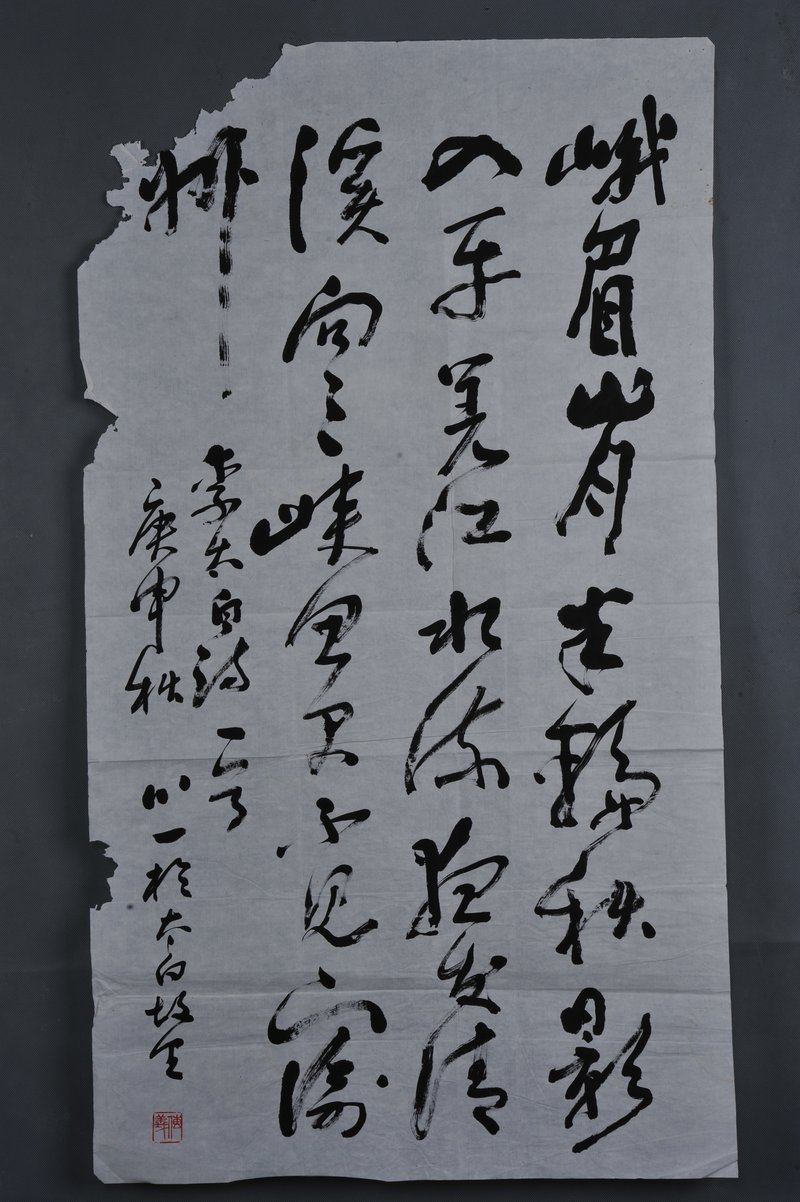 峨眉山月半輪秋影
入平羌江水流夜发清
溪向三峡思君不见下渝
州
李太白诗一首
庚申秋
一於太白故里